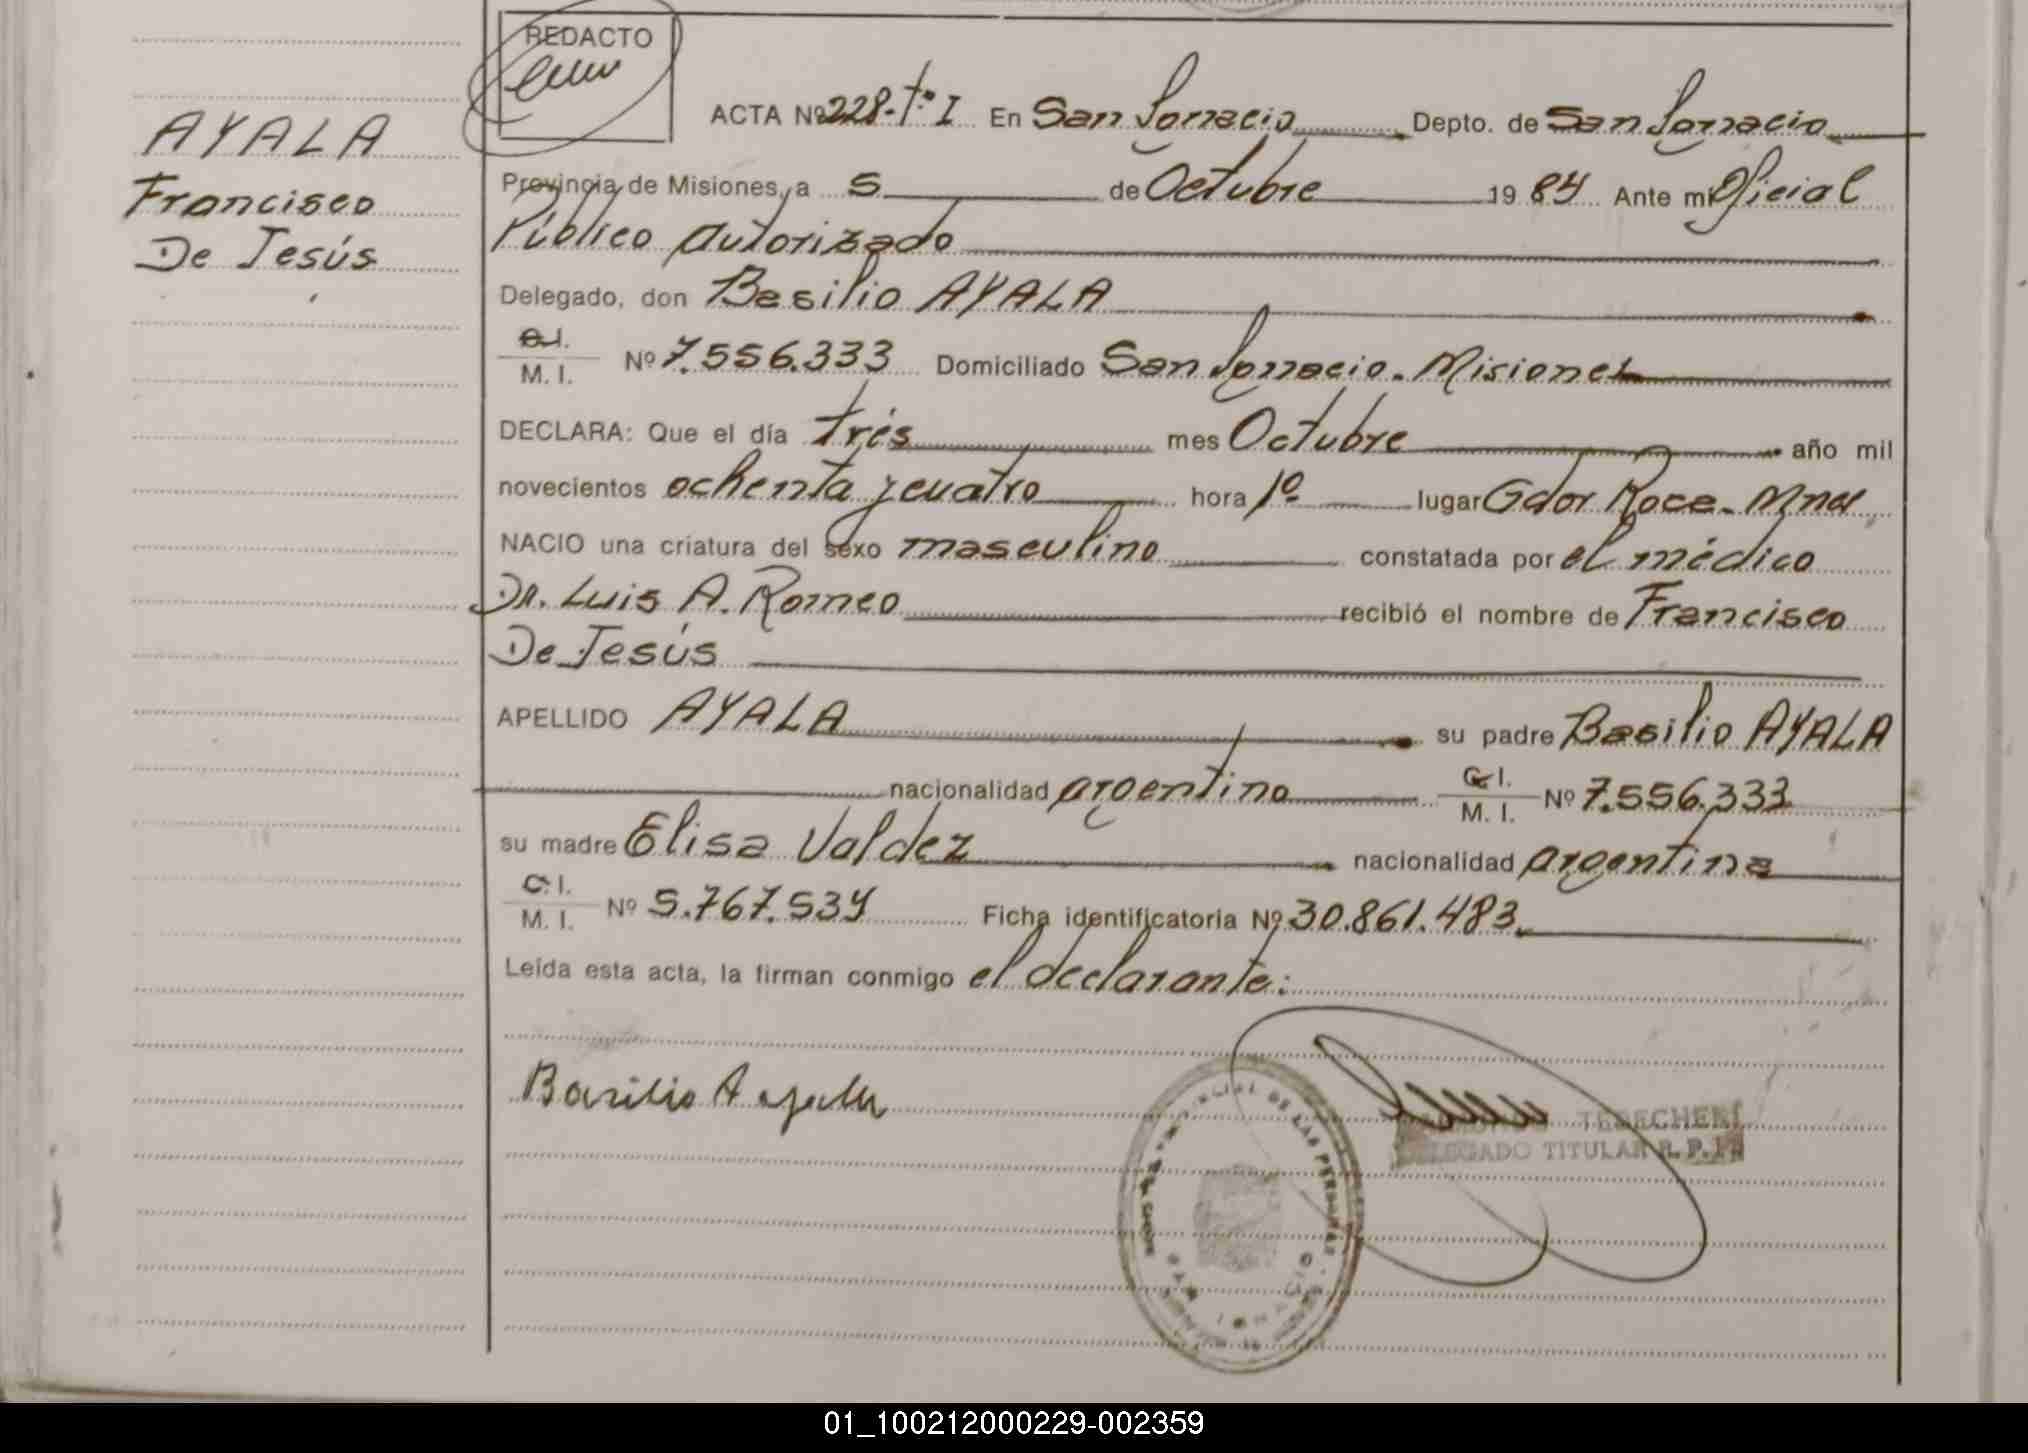 REDACTO
ACTA Nº 228-Tº I En San Ignacio Depto. de San Ignacio
AYALA
Francisco
De Jesús
Provincia de Misiones, a 5 de Octubre 1984 Ante mi Oficial
Público autorizado
Delegado, don Basilio AYALA
C.I.
M. I. Nº 7.556.333 Domiciliado San Ignacio. Misiones
DECLARA: Que el día trés mes Octubre año mil
novecientos ochenta y cuatro hora 1º lugar Gdor Roca. Mnes
NACIO una criatura del sexo masculino constatada por el médico
Dr. Luis A. Romeo recibió el nombre de Francisco
De Jesús
APELLIDO AYALA su padre Basilio AYALA
nacionalidad argentino C.I.
M. I. Nº 7.556.333
su madre Elisa Valdez nacionalidad argentina
C.I.
M. I. Nº 5.767.534 Ficha identificatoria Nº 30.861.483.
Leída esta acta, la firman conmigo el declarante:
Basilio Ayala
TERECHEN
DELEGADO TITULAR R. P. P.
DE LAS PERSONAS
SAN IGNACIO
01_100212000229-002359